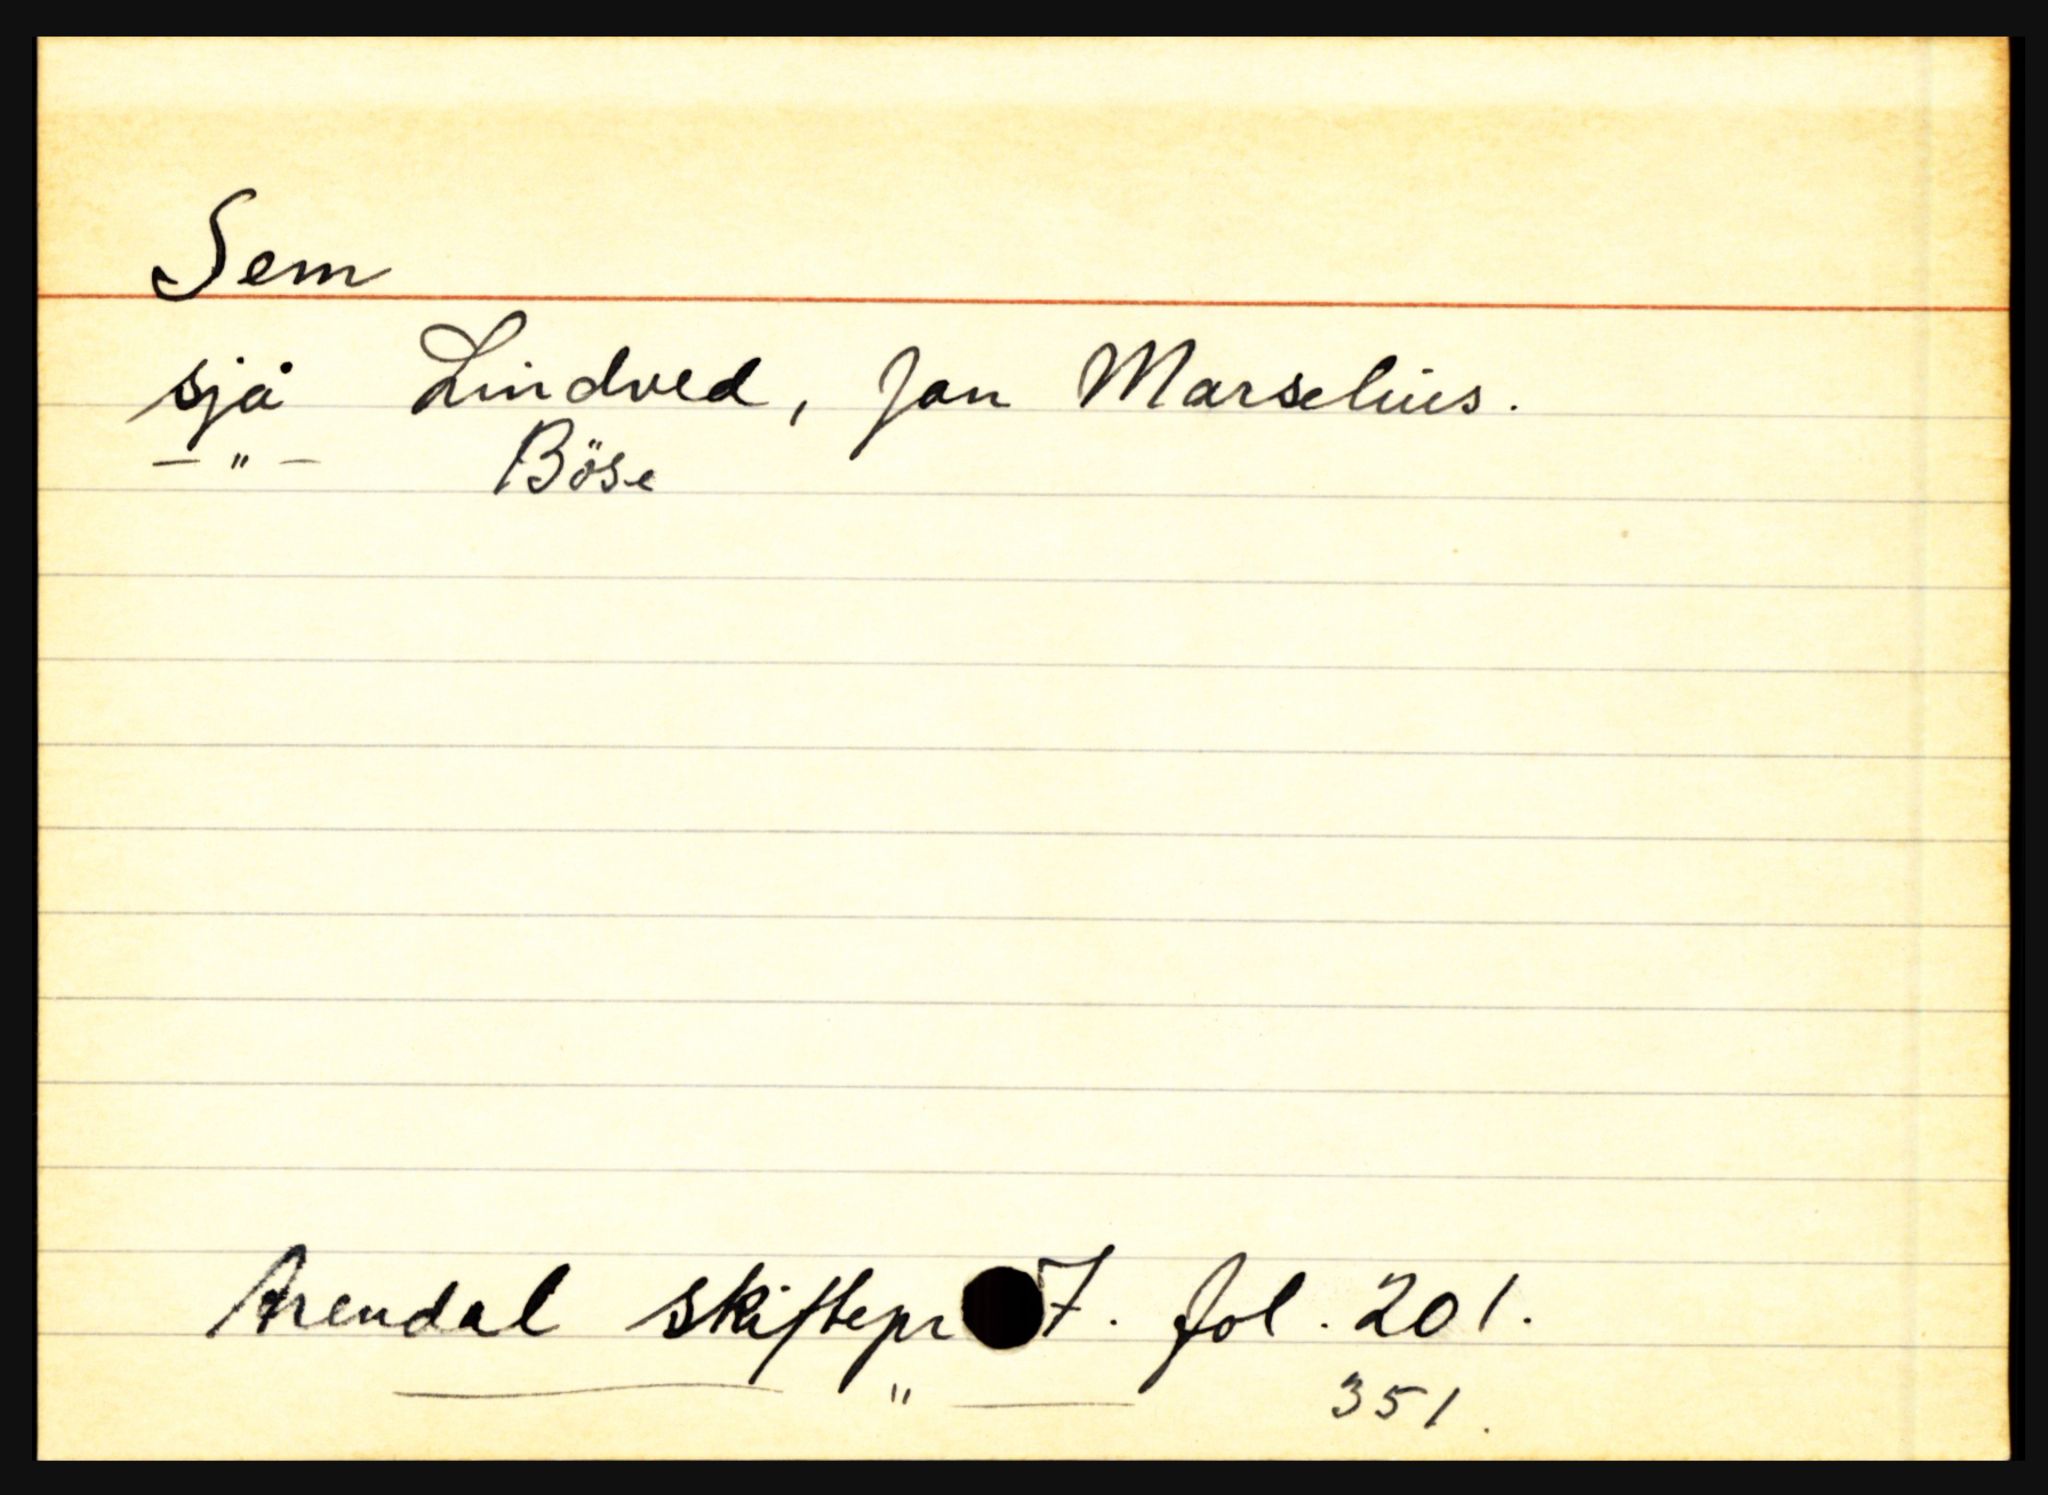 Sem
sjå Lindved, Jan Marselius.
— " — Böse
Arendal skiftepr 7. fol. 201.
— " — 351.